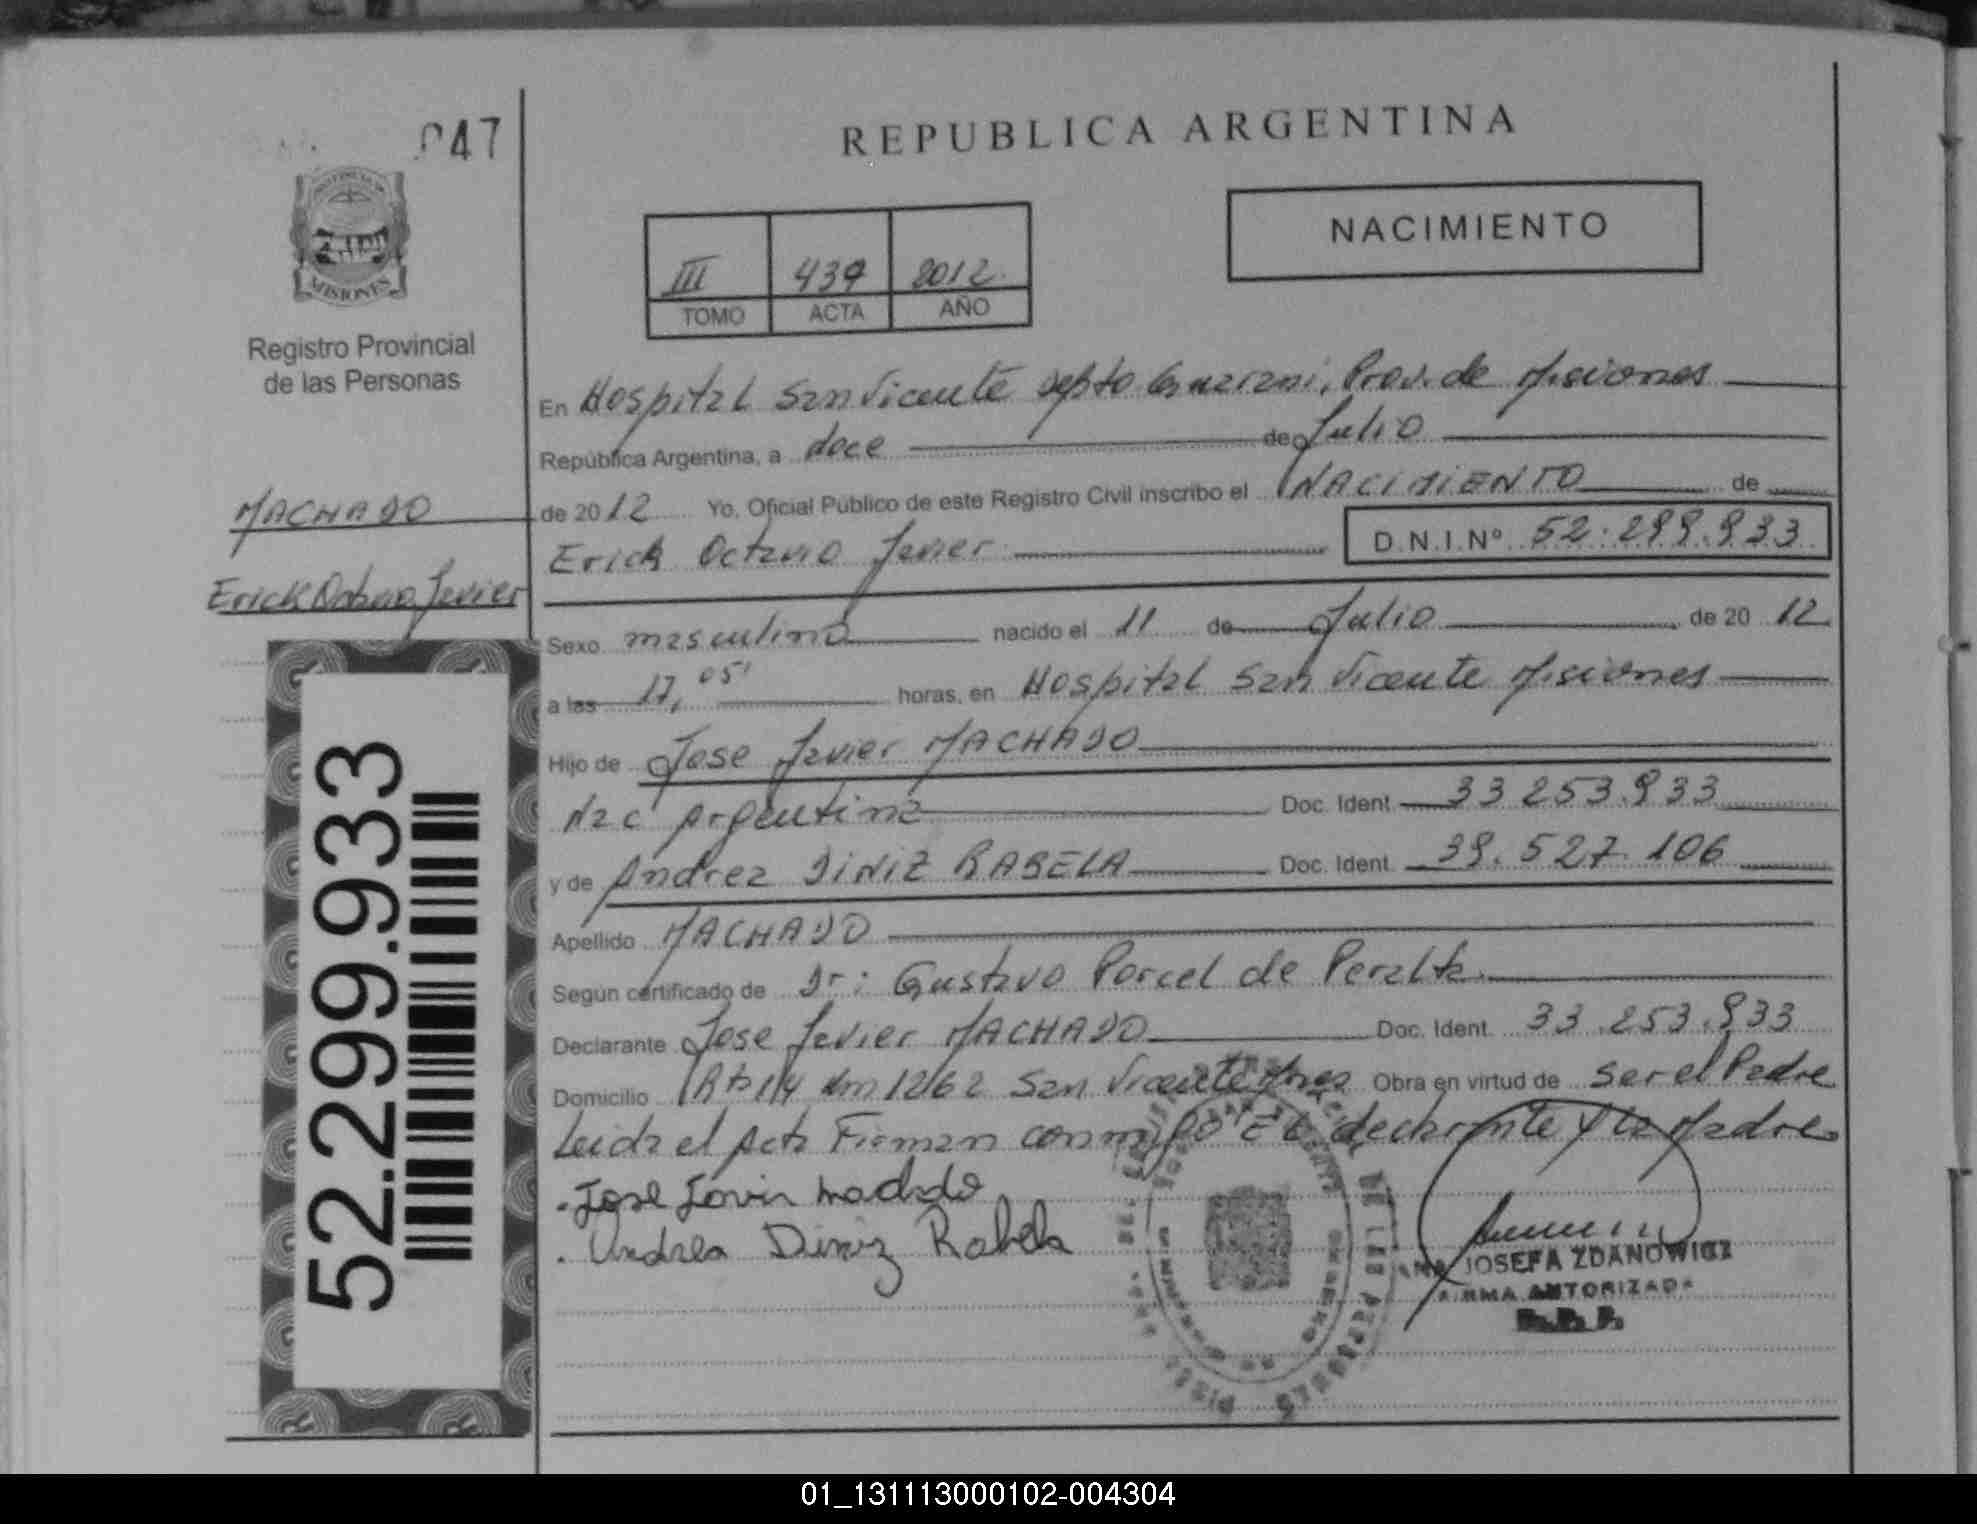 047
REPUBLICA ARGENTINA
NACIMIENTO
III 439 2012
TOMO ACTA AÑO
MISIONES
Registro Provincial
de las Personas
MACHADO
Erick Octavio Javier
52.299.933
En Hospital San Vicente Depto Guarani, Prov. de Misiones
República Argentina, a doce de Julio
de 2012 Yo, Oficial Público de este Registro Civil inscribo el NACIMIENTO de
Erick Octavio Javier D.N.I.Nº 52.299.933
Sexo masculino nacido el 11 de Julio de 2012
a las 17,05' horas, en Hospital San Vicente Misiones
Hijo de Jose Javier MACHADO
Nac argentina Doc. Ident. 33 253.933
y de Andrea DINIZ RABELA Doc. Ident. 39.527.106
Apellido MACHADO
Según certificado de Dr: Gustavo Porcel de Peralta
Declarante Jose Javier MACHADO Doc. Ident. 33.253.933
Domicilio Rta 14 Km 1262 San Vicente Mnes Obra en virtud de ser el Padre
Leida el Acta Firman conmigo El declarante y la Madre
Jose Javier Machado
Andrea Diniz Rabela
JOSEFA ZDANOWICZ
FIRMA AUTORIZADA
R.P.P.
01_131113000102-004304